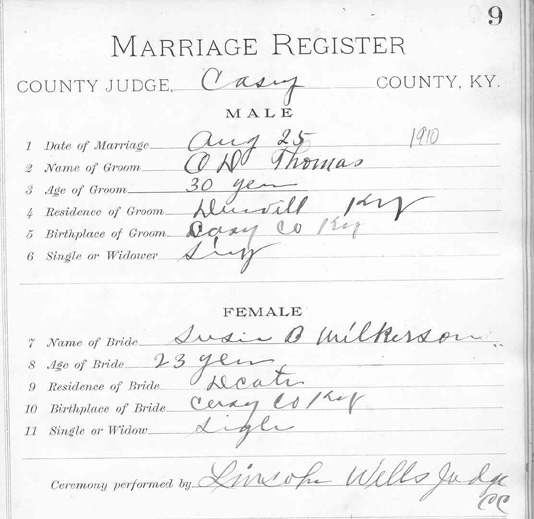 9
MARRIAGE REGISTER
COUNTY JUDGE, Casey COUNTY, KY.
MALE
1 Date of Marriage Aug 25 1910
2 Name of Groom O D Thomas
3 Age of Groom 30 yen
4 Residence of Groom Ky
5 Birthplace of Groom Casy Co Ky
6 Single or Widower Sing
FEMALE
7 Name of Bride Susie B Wilkerson
8 Age of Bride 23 yen
9 Residence of Bride
10 Birthplace of Bride Casy Co Ky
11 Single or Widow Sigle
Ceremony performed by Lincoln Wells Judge
CC